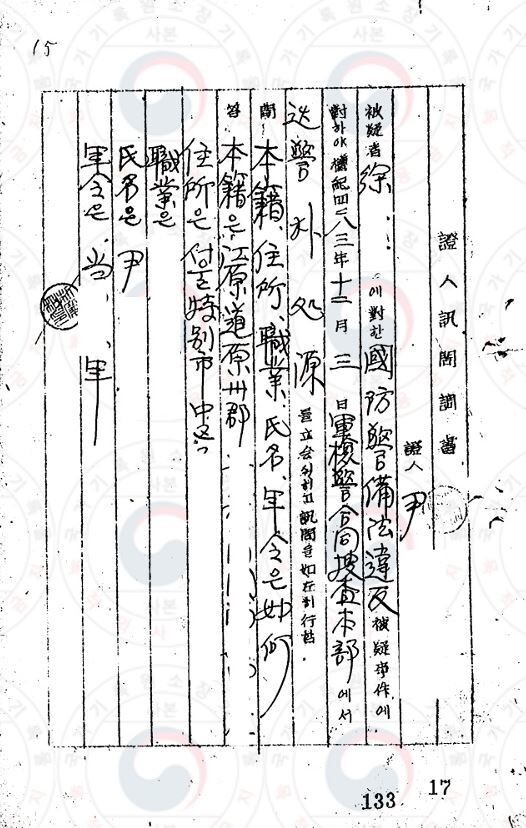 15
證人訊問調書
證人 尹
被疑者 徐 에對한 國防警備法違反 被疑事件에
對하야 檀紀四二八三年 十二月 三日 軍檢警合同搜査本部에서
警 朴 処源 를立会
問 本籍、住所、職業 氏名、年令은 如何
答 本籍은 江原道原州郡
住所은 서울特別市 中
職業은
氏名은 尹
年令은 当 年
133
17
국가기록원소장
사본